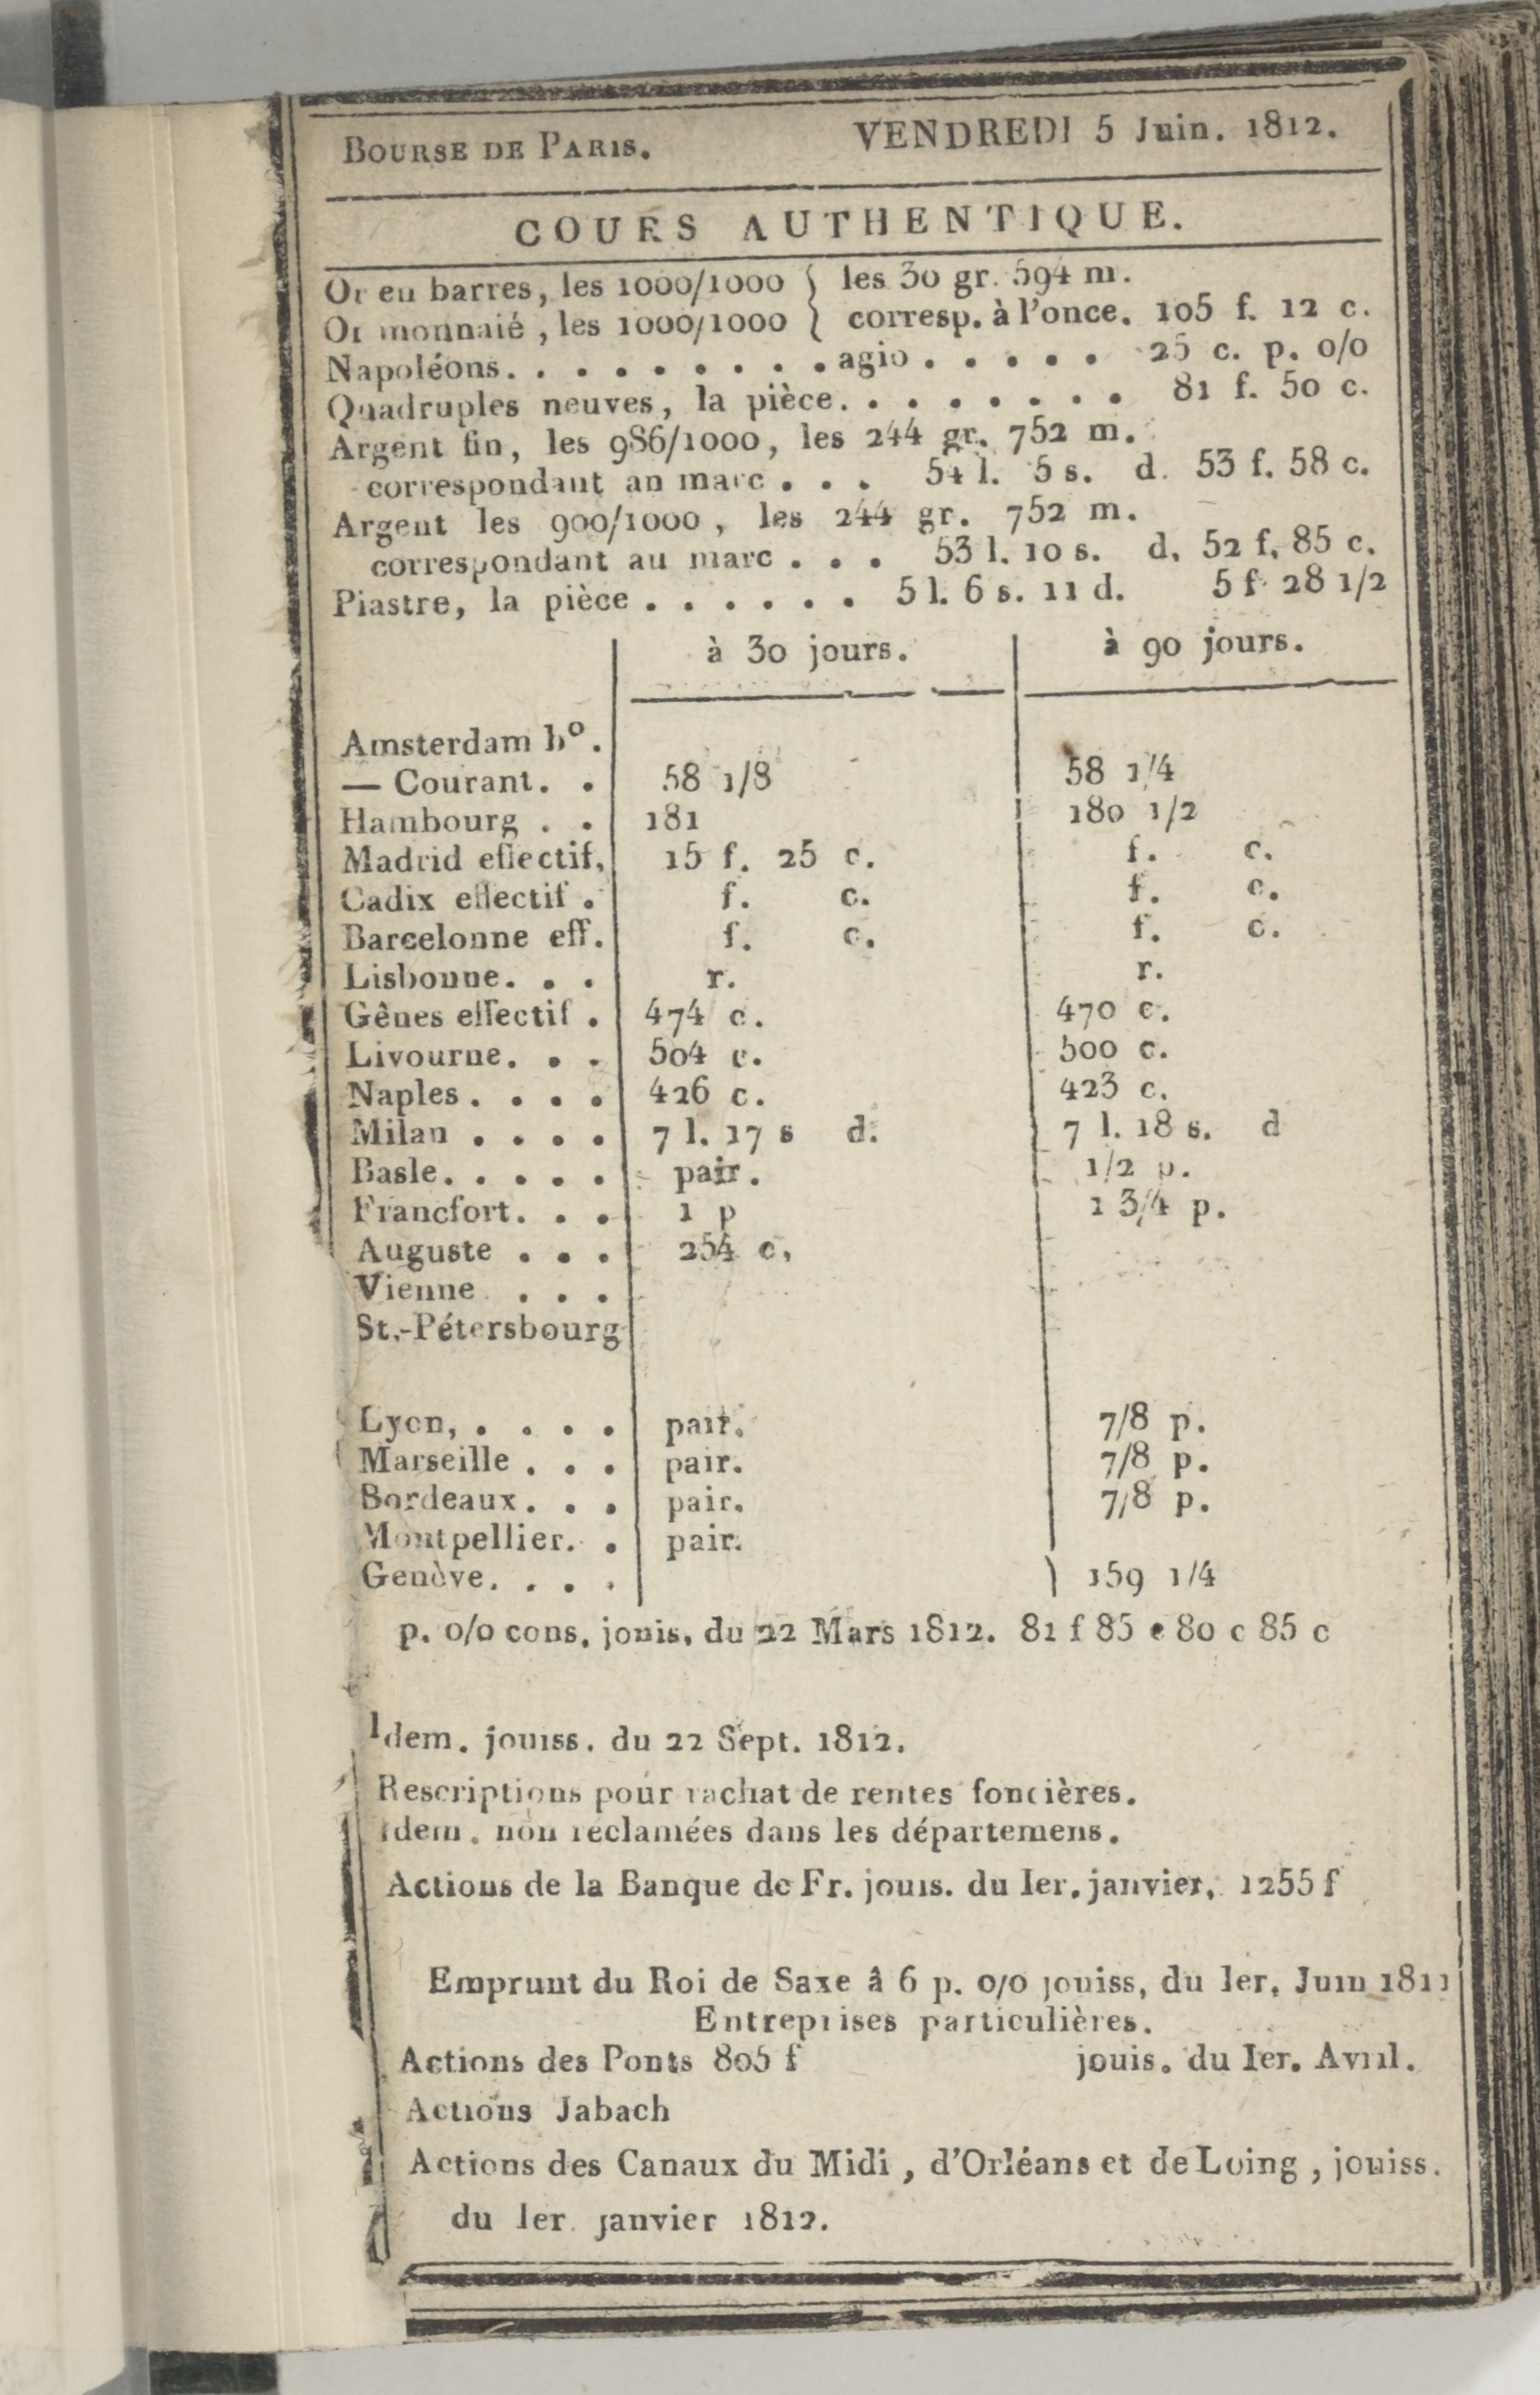 BOURSE DE PARIS. VENDREDI 5 Juin. 1812.
COURS AUTHENTIQUE.
Or en barres, les 1000/1000 } les 30 gr. 594 m.
Or monnaié, les 1000/1000 { corresp. à l'once. 105 f. 12 c.
Napoléons. . . . . . . . . agio . . . . . 25 c. p. o/o
Quadruples neuves, la pièce. . . . . . . . 81 f. 50 c.
Argent fin, les 986/1000, les 244 gr. 752 m.
correspondant au marc . . . 54 l. 5 s. d. 53 f. 58 c.
Argent les 900/1000, les 244 gr. 752 m.
correspondant au marc . . . 53 l. 10 s. d. 52 f. 85 c.
Piastre, la pièce . . . . . . 5 l. 6 s. 11 d. 5 f 28 1/2
à 30 jours. à 90 jours.
Amsterdam bº.
— Courant. . 58 1/8 58 1/4
Hambourg . . 181 180 1/2
Madrid effectif, 15 f. 25 c. f. c.
Cadix effectif . f. c. f. c.
Barcelonne eff. f. c. f. c.
Lisbonne. . . r. r.
Gênes effectif . 474 c. 470 c.
Livourne. . . 504 c. 500 c.
Naples. . . . 426 c. 423 c.
Milan . . . . 7 l. 17 s d. 7 l. 18 s. d
Basle. . . . . pair. 1/2 p.
Francfort. . . 1 p 1 3/4 p.
Auguste . . . 254 c,
Vienne . . .
St.-Pétersbourg
Lyon, . . . . pair. 7/8 p.
Marseille . . . pair. 7/8 p.
Bordeaux. . . pair. 7/8 p.
Montpellier. . pair.
Genève. . . . 159 1/4
p. o/o cons, jouis, du 22 Mars 1812. 81 f 85 c 80 c 85 c
Idem. jouiss. du 22 Sept. 1812.
Rescriptions pour rachat de rentes foncières.
Idem. non réclamées dans les départemens.
Actions de la Banque de Fr. jouis. du Ier. janvier, 1255 f
Emprunt du Roi de Saxe â 6 p. o/o jouiss, du Ier, Juin 1811
Entreprises particulières.
Actions des Ponts 805 f jouis. du Ier. Avril.
Actions Jabach
Actions des Canaux du Midi, d'Orléans et de Loing, jouiss.
du Ier janvier 1812.